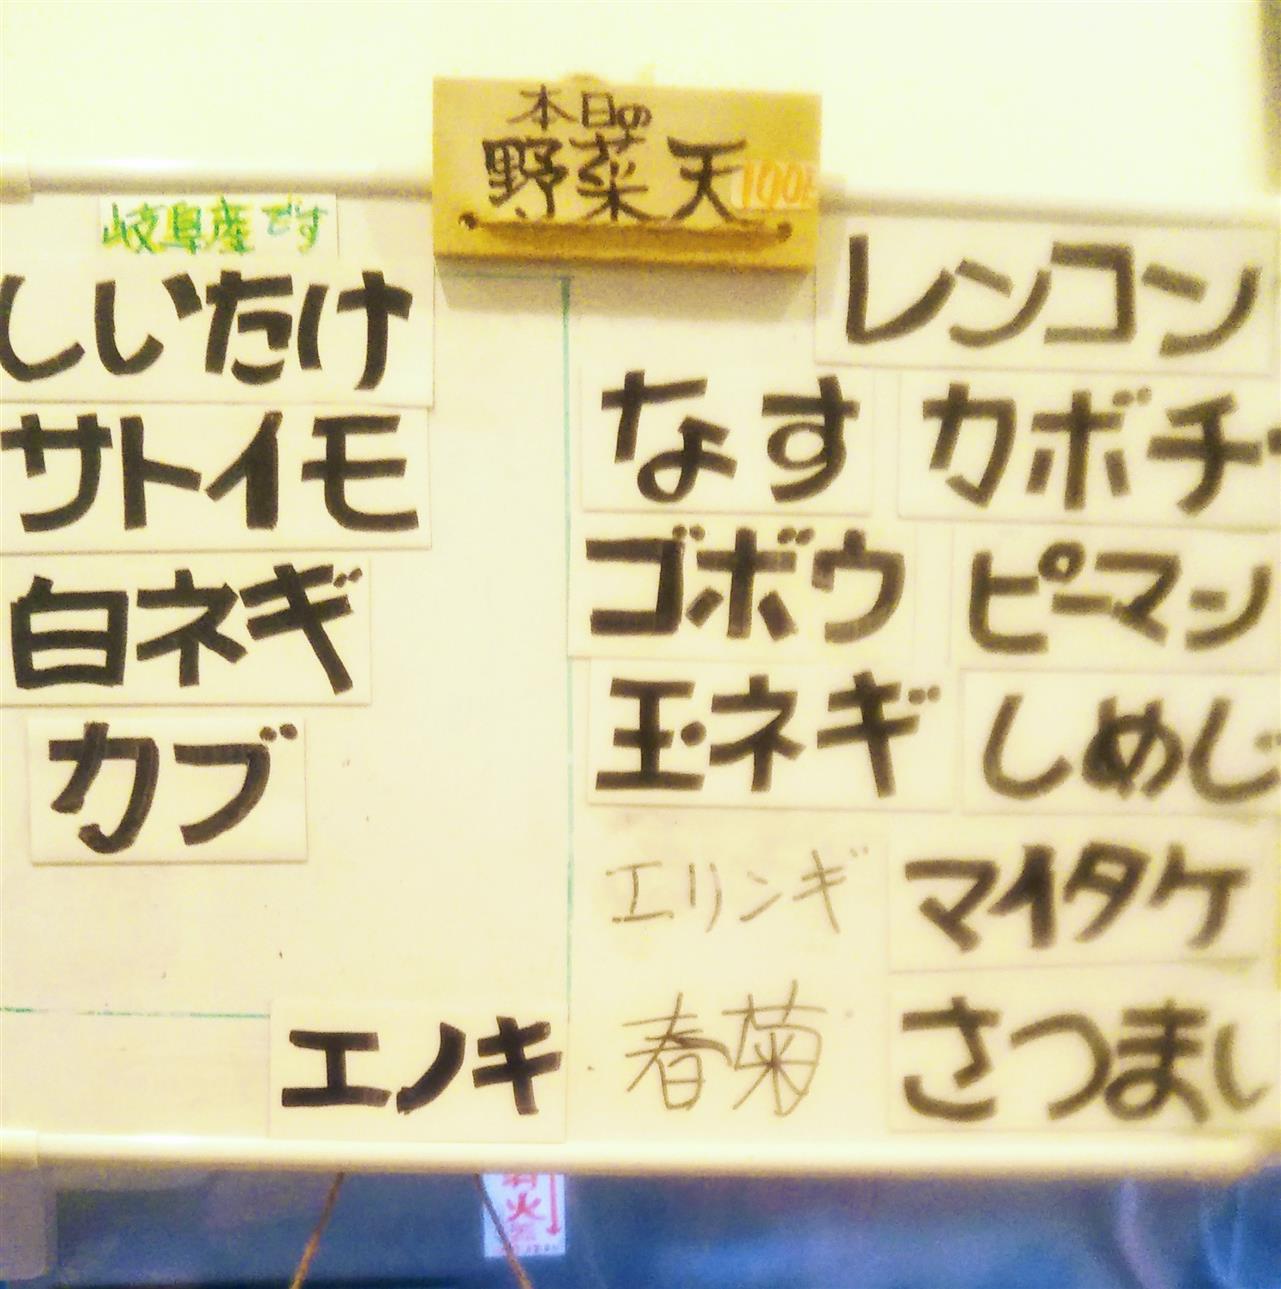 本日の
野菜天
100円
岐阜産です
しいたけ
サトイモ
白ネギ
カブ
エノキ
レンコン
なす
カボチ
ゴボウ
ピーマン
玉ネギ
しめじ
エリンギ
マイタケ
春菊
さつまい
火